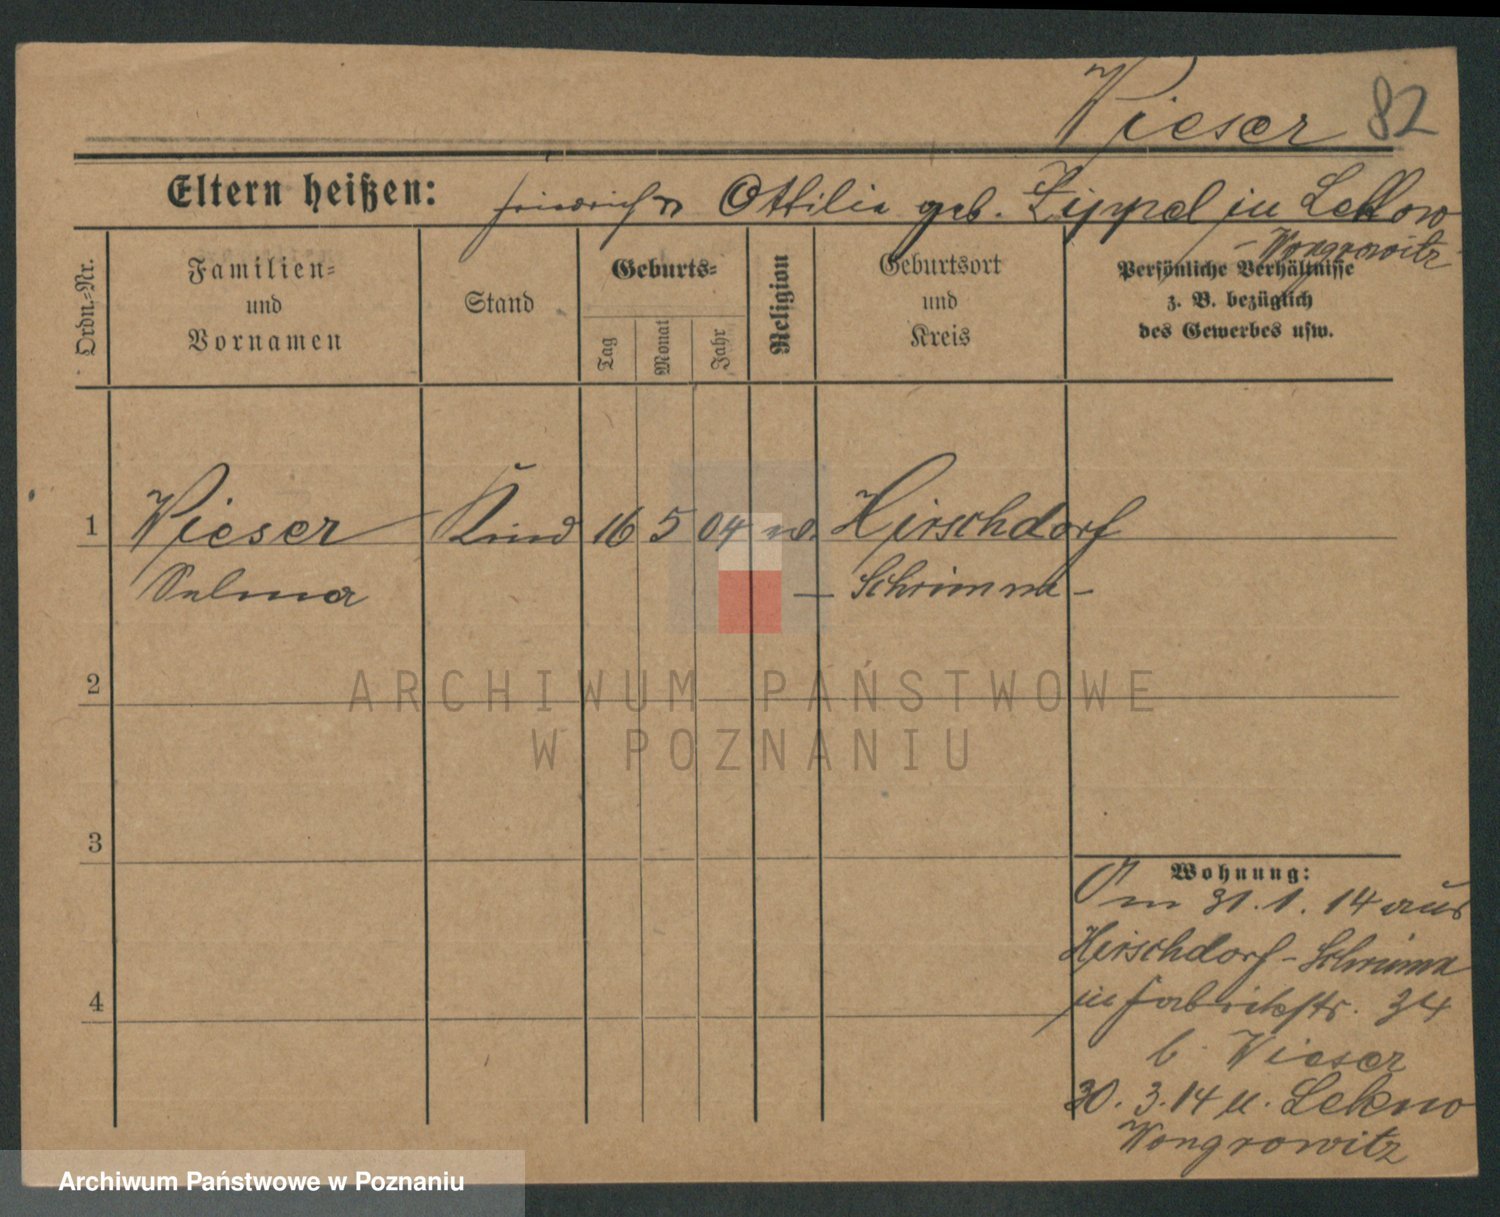 Wieser 82
Eltern heißen: Friedrich u Ottilie geb. Zippel in Lekkow
- Wongrowitz
Ordn.-Nr.
Familien-
und
Vornamen
Stand
Geburts-
Tag
Monat
Jahr
Religion
Geburtsort
und
Kreis
Persönliche Verhältnisse
z. B. bezüglich
des Gewerbes usw.
1 Wieser Kind 16 5 04 ev. Hirschdorf
Selma — Schrimm -
2
ARCHIWUM PAŃSTWOWE
W POZNANIU
3
Wohnung:
Am 31.1.14 aus
Hirschdorf - Schrimm
in Fabrikstr. 34
b. Wieser
30.3.14 n. Lekno
Wongrowitz
4
Archiwum Państwowe w Poznaniu